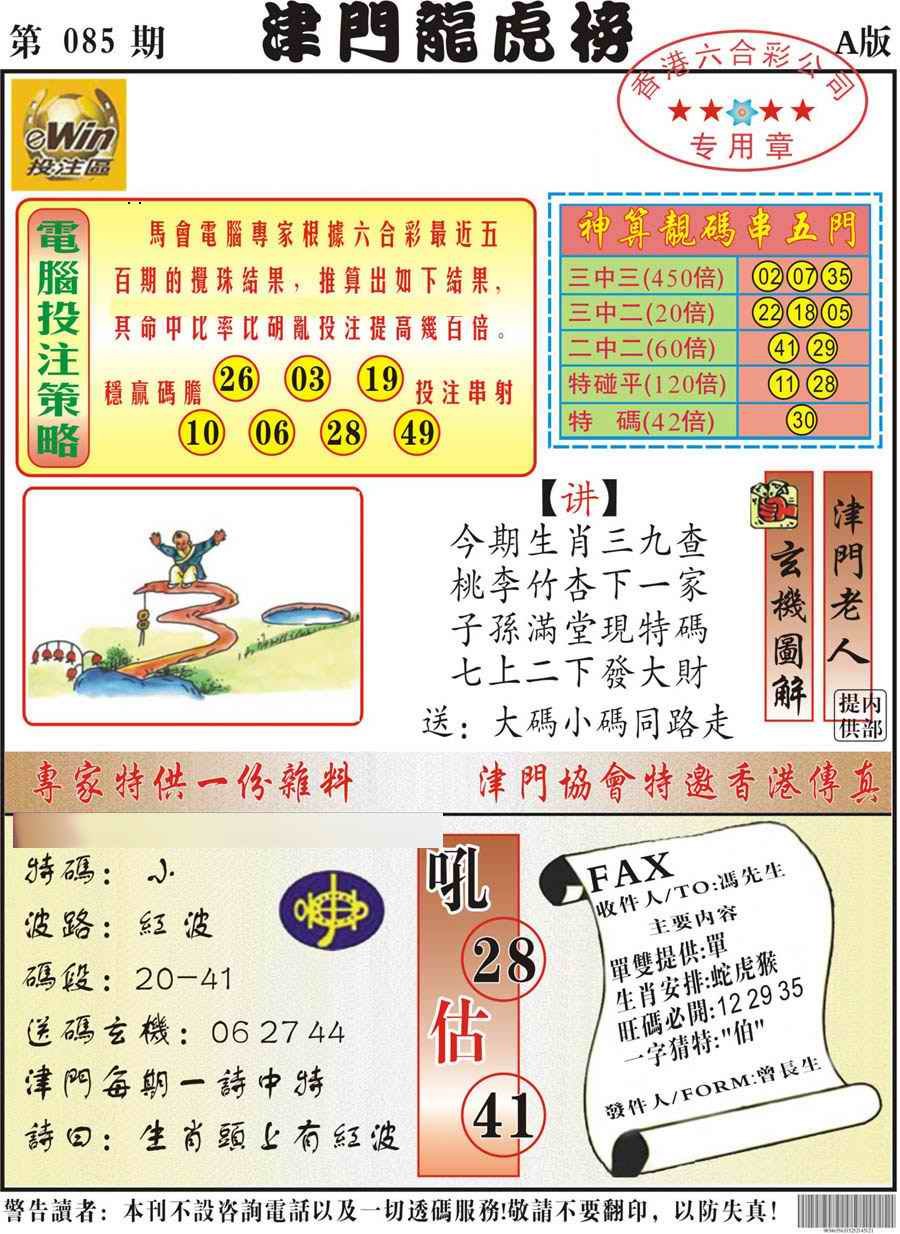 第 085 期
津門龍虎榜
A版
香港六合彩公司
专用章
eWin
投注區
電腦投注策略
馬會電腦專家根據六合彩最近五
百期的攪珠結果，推算出如下結果，
其命中比率比胡亂投注提高幾百倍。
穩贏碼膽 26 03 19 投注串射
10 06 28 49
神算靚碼串五門
三中三(450倍) 02 07 35
三中二(20倍) 22 18 05
二中二(60倍) 41 29
特碰平(120倍) 11 28
特 碼(42倍) 30
【讲】
今期生肖三九查
桃李竹杏下一家
子孫滿堂現特碼
七上二下發大財
送：大碼小碼同路走
玄機圖解
津門老人
内部提供
專家特供一份雜料
津門協會特邀香港傳真
特碼：小
波路：紅波
碼段：20-41
送碼玄機：06 27 44
津門每期一詩中特
詩曰：生肖頭上有紅波
吼
28
估
41
FAX
收件人/TO:馮先生
主要内容
單雙提供:單
生肖安排:蛇虎猴
旺碼必開:12 29 35
一字猜特:"伯"
發件人/FORM:曾長生
警告讀者：本刊不設咨詢電話以及一切透碼服務!敬請不要翻印，以防失真！